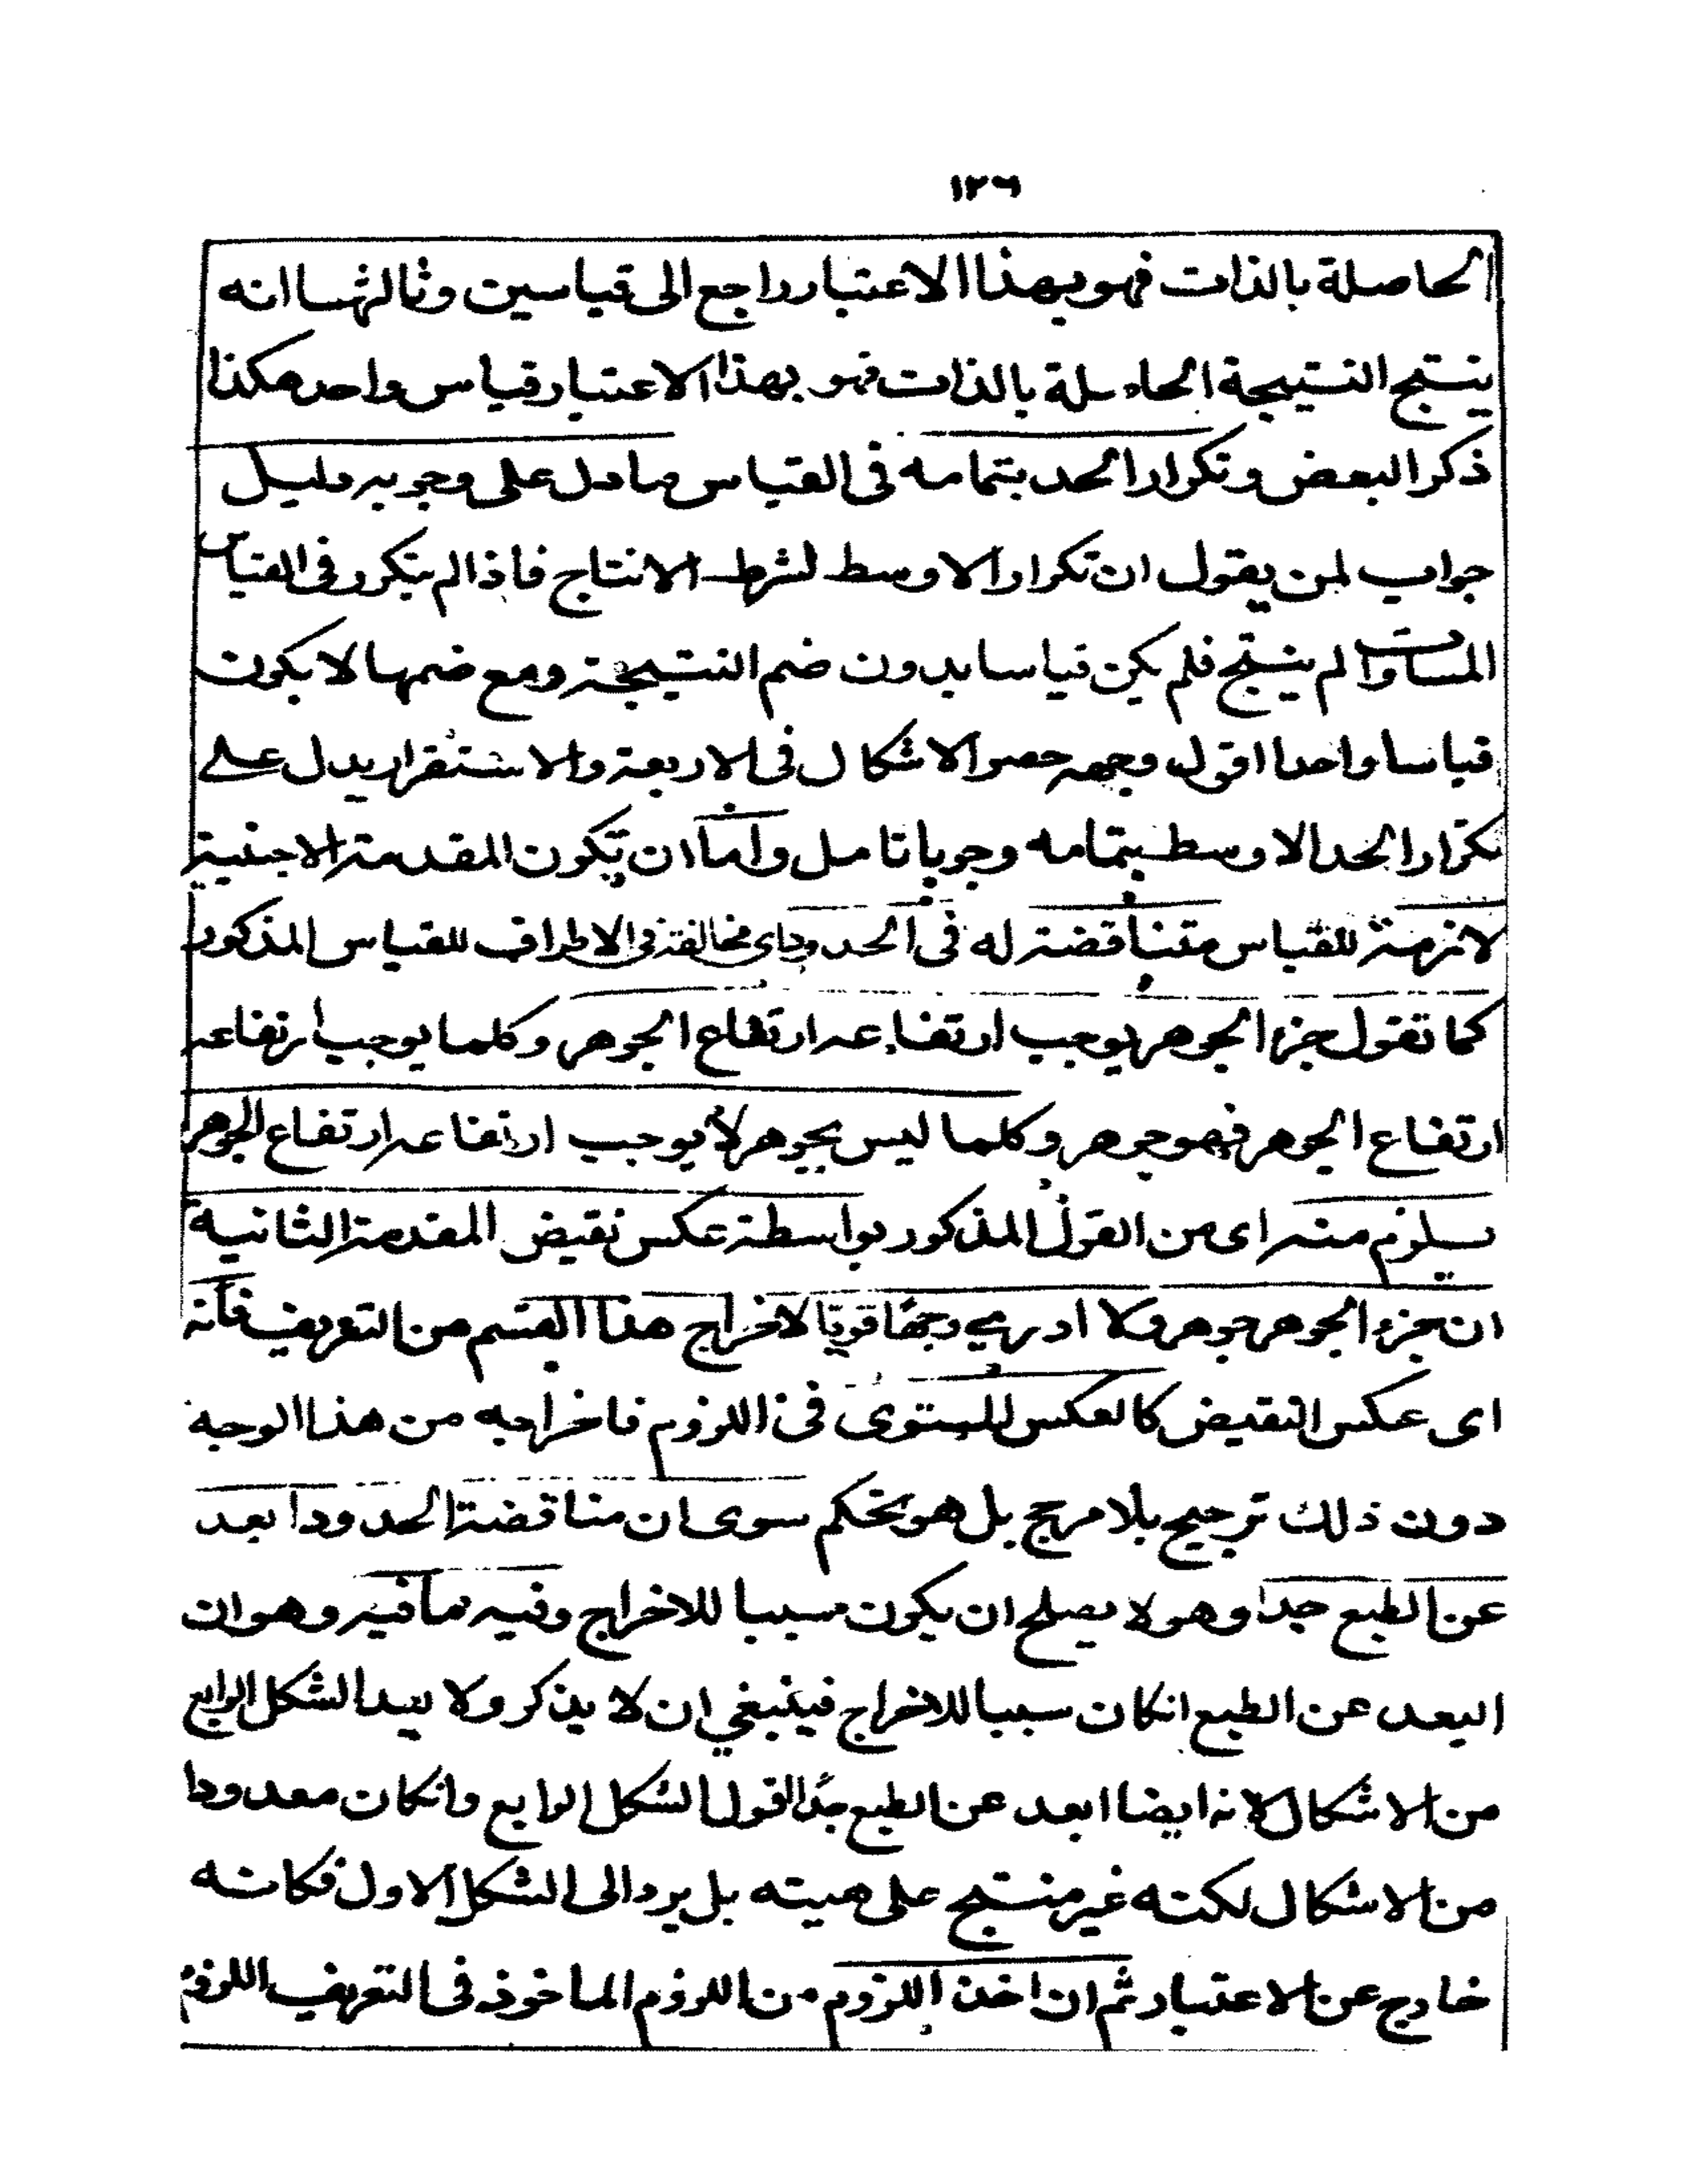 ١٢٦
الحاصلة بالذات فهو بهذا الاعتبار راجع الى قياسين وثالثها انه
ينتج النتيجة الحاصلة بالذات فهو بهذا الاعتبار قياس واحد هكذا
ذكر البعض وتكرار الحد بتمامه فى القياس مادل على وجوبه دليل
جواب لمن يقول ان تكرار الاوسط لشرط الانتاج فاذا لم يتكرر فى القياس
المساوات لم ينتج فلم يكن قياسا بدون ضم النتيجة ومع ضمها لا يكون
قياسا واحدا اقول وجه حصر الاشكال فى الاربعة والاستقرار يدل على
تكرار الحد الاوسط بتمامه وجوبا تامل واما ان تكون المقدمة الاجنبية
لازمة للقياس متناقضة له فى الحدود اى مخالفة فى الاطراف للقياس المذكور
كما تقول جزء الجوهر يوجب ارتفاعه ارتفاع الجوهر وكلما يوجب ارتفاعه
ارتفاع الجوهر فهو جوهر وكلما ليس بجوهر لا يوجب ارتفاعه ارتفاع الجوهر
يلزم منه اى من القول المذكور بواسطة عكس نقيض المقدمة الثانية
ان جزء الجوهر جوهر ولا ادرى وجها قويا لاخراج هذا القسم من التعريف فانه
اى عكس النقيض كالعكس المستوى فى اللزوم فاخراجه من هذا الوجه
دون ذلك ترجيح بلا مرجح بل هو تحكم سوى ان مناقضة الحدود ابعد
عن الطبع جدا وهو لا يصلح ان يكون سببا للاخراج وفيه ما فيه وهو ان
البعد عن الطبع انكان سببا للاخراج فينبغي ان لا يذكر ولا يبدا الشكل الرابع
من الاشكال لانه ايضا ابعد عن الطبع جدا القول الشكل الرابع وانكان معدودا
من الاشكال لكنه غير منتج على هيته بل يرد الى الشكل الاول فكانه
خارج عن الاعتبار ثم ان اخذ اللزوم من اللزوم الماخوذ فى التعريف اللزوم